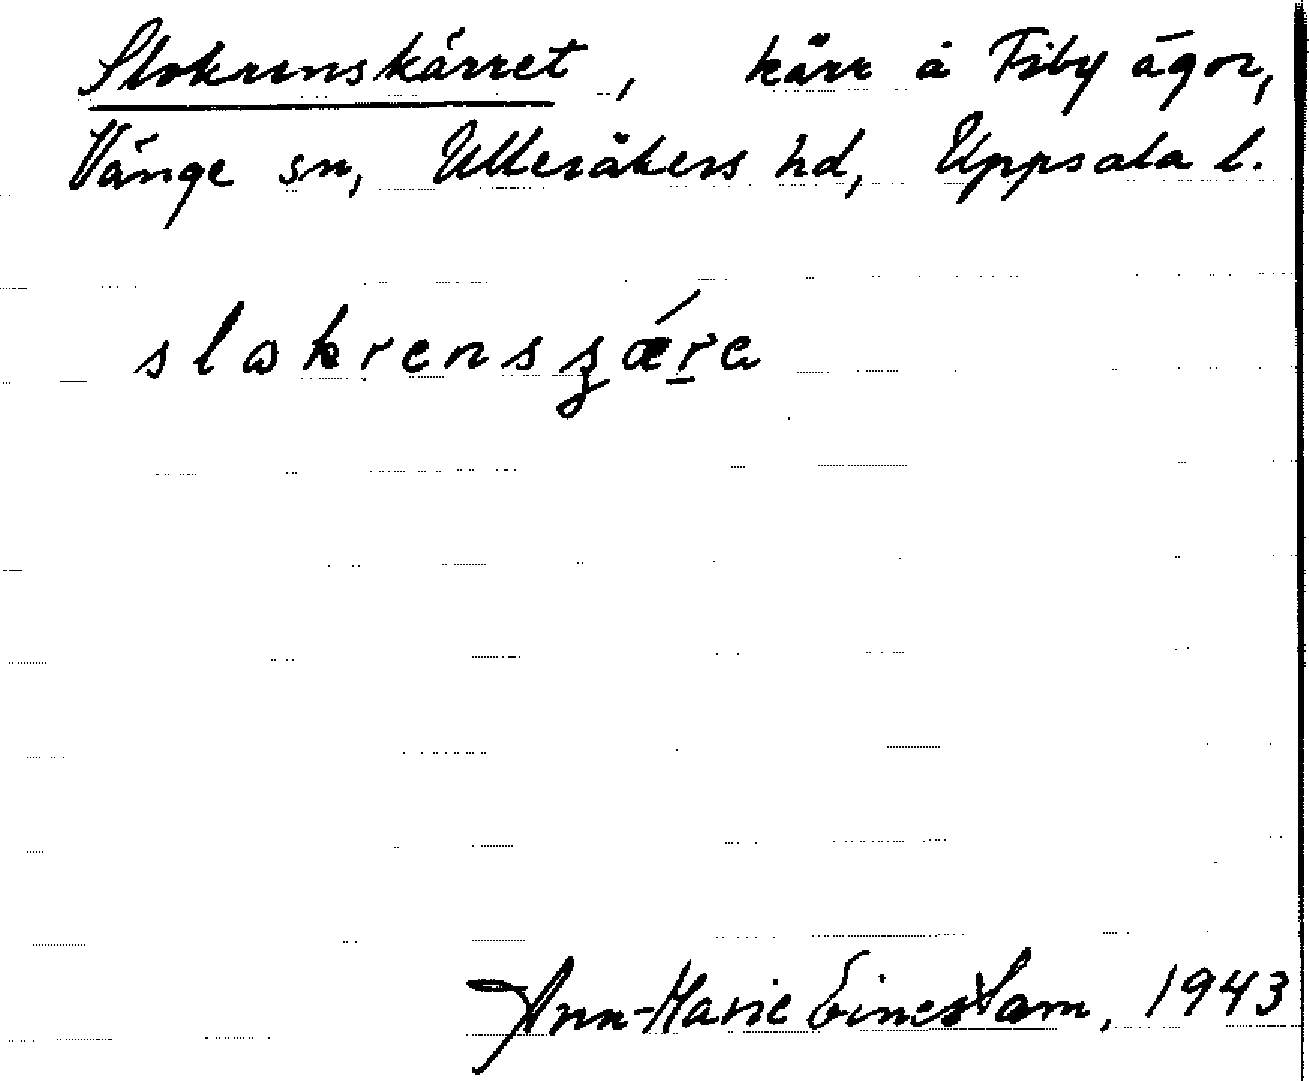 Slokrenskärret, kärr å Fiby ägor,
Vänge sn, Ulleråkers hd, Uppsala l.
Ann-Marie Einestam, 1943